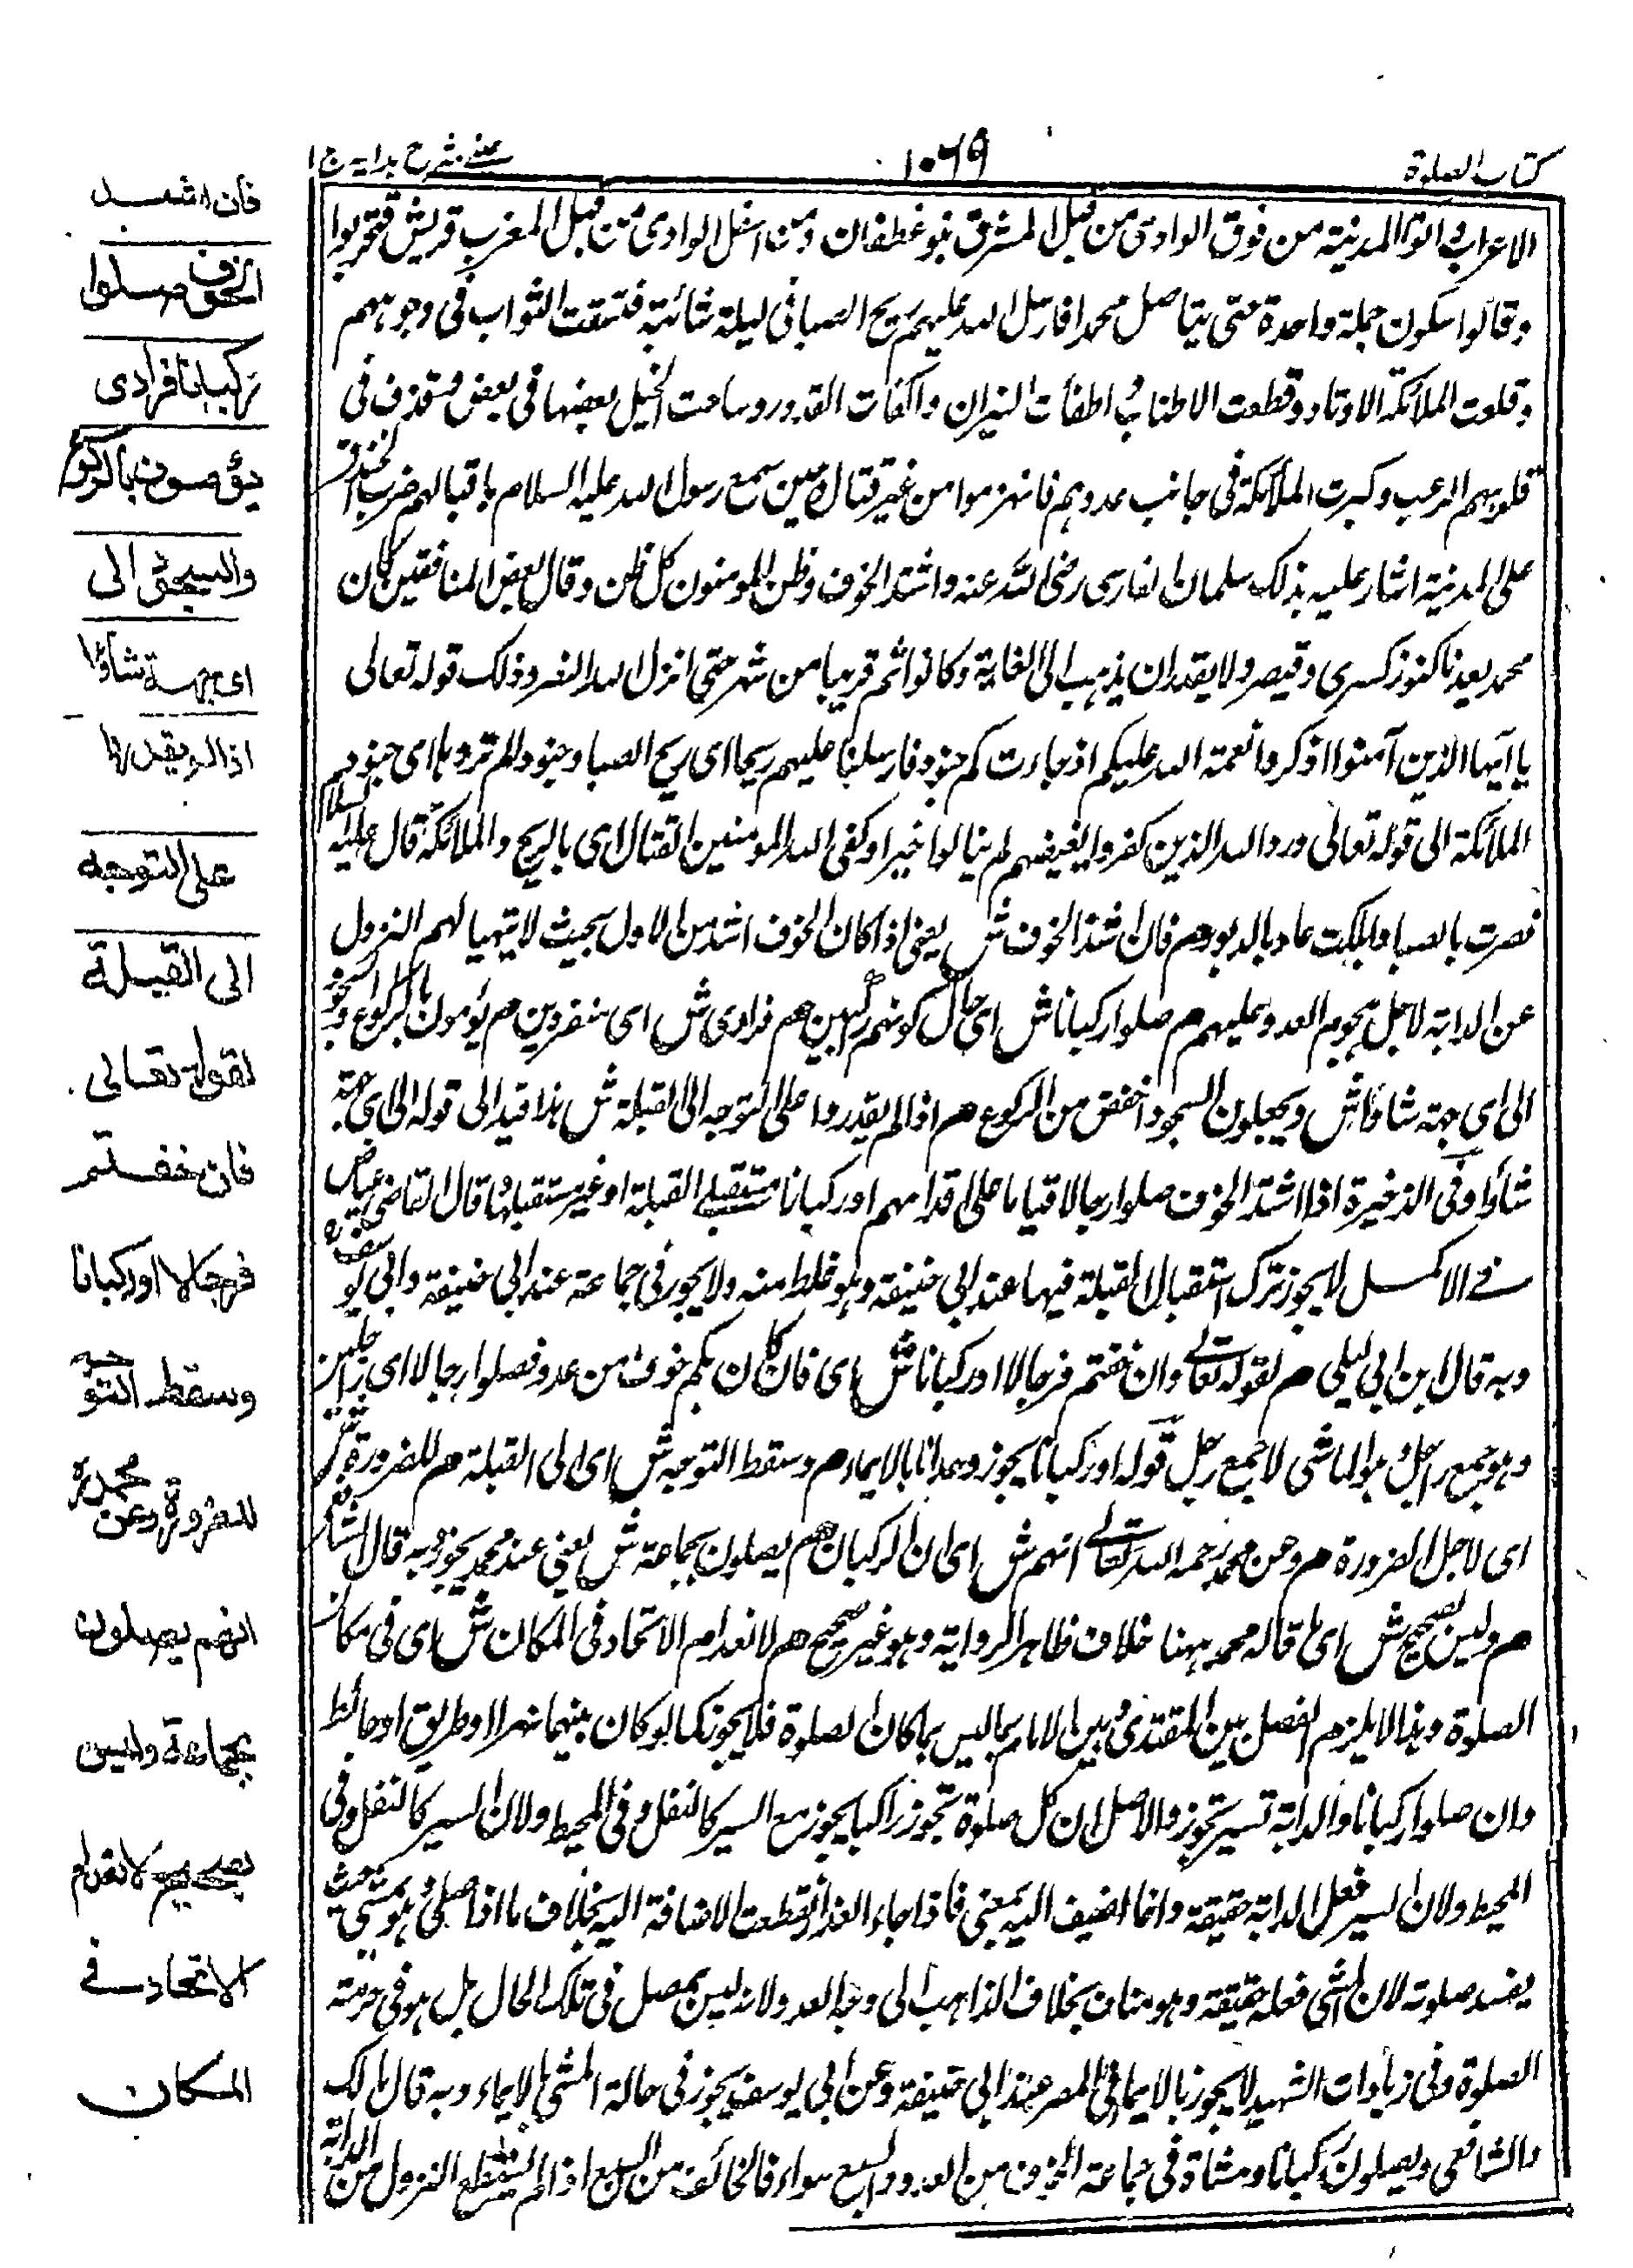 كتاب الصلوة
١٠٦٩
عينى شرح هدايه ج ١
الاعراب واتوا المدينة من فوق الوادى من قبل المشرق بنو غطفان ومن اسفل الوادى من قبل المغرب قريش فتحزبوا
وقالوا سنكون جملة واحدة حتى يتاصل محمدا فارسل الله عليهم ريح الصبا فى ليلة شاتية فسفت التراب فى وجوههم
وقلعت الملائكة الاوتاد وقطعت الاطناب واطفأت النيران واكفأت القدور وماجت الخيل بعضها فى بعض وقذف فى
قلوبهم الرعب وكبرت الملائكة فى جانب عدوهم فانهزموا من غير قتال وحين سمع رسول الله عليه السلام باقبالهم ضرب الخندق
على المدينة اشار عليه بذلك سلمان الفارسى رضى الله عنه واشتد الخوف وظن المومنون كل ظن وقال بعض المنافقين كان
محمد يعدنا كنوز كسرى وقيصر ولا يقدر ان يذهب الى الغاية وكانوا ثم قريبا من شهر حتى انزل الله النصر وذلك قوله تعالى
يا ايها الذين آمنوا اذكروا نعمة الله عليكم اذ جاءت كم جنود فارسلنا عليهم ريحا اى ريح الصبا وجنودا لم تروها اى جنود
الملائكة الى قوله تعالى ورد الله الذين كفروا بغيضهم لم ينالوا خيرا وكفى الله المومنين القتال اى بالريح والملائكة قال عليه السلام
نصرت بالصبا واهلكت عاد بالدبور م فان اشتد الخوف ش يعنى اذا كان الخوف اشد من الاول بحيث لا يتهيا لهم النزول
عن الدابة لاجل هجوم العدو عليهم م صلوا ركبانا ش اى حال كونهم راكبين م فرادى ش اى منفردين م يؤمون بالركوع والسجود
الى اى جهة شاؤا ش ويجعلون السجود اخفض من الركوع م اذا لم يقدروا على التوجه الى القبلة ش هذا قيد الى قوله الى اى جهة
شاؤا وفى الذخيرة اذا اشتد الخوف صلوا رجالا قياما على اقدامهم او ركبانا مستقبلى القبلة او غير مستقبلها قال القاضى عياض
فے الاكمل لا يجوز ترك استقبال القبلة فيها عند ابى حنيفة وهو غلط منه ولا يجوز فى جماعة عند ابى حنيفة وابى يوسف
وبه قال ابن ابى ليلى م لقوله تعالى وان خفتم فرجالا او ركبانا ش اى فان كان بكم خوف من عدو فصلوا رجالا اى راجلين
وهو جمع راجل وهو الماشى لا جمع رجل قوله او ركبانا يجوز وحدانا بالايماء م وسقط التوجه ش اى الى القبلة م للضرورة ش
اى لاجل الضرورة م وعن محمد رحمه الله تعالى انهم ش اى ان الركبان م يصلون بجماعة ش يعنى عند محمد يجوز وبه قال الشافعى
م وليس بصحيح ش اى ما قاله محمد ههنا خلاف ظاهر الرواية وهو غير صحيح م لانعدام الاتحاد فى المكان ش اى فى مكان
الصلوة وهذا لا يلزم الفصل بين المقتدى وبين الامام بما ليس بمكان الصلوة فلا يجوز كما لو كان بينهما نهر او طريق او حائط
وان صلوا ركبانا والدابة تسير تجوز والاصل ان كل صلوة تجوز راكبا يجوز مع السير كالنفل وفى المحيط ولان السير كالنفل وفى
المحيط ولان السير فعل الدابة حقيقة وانما اضيف اليه بمعنى فاذا جاء العذر انقطعت الاضافة اليه بخلاف ما اذا صلى وهو يمشى حيث
يفسد صلوته لان المشى فعله حقيقة وهو مناف بخلاف الذاهب الى وجه العدو لانه ليس بمصل فى تلك الحال بل هو فى حرمة
الصلوة وفى زيادات الشهيد لا يجوز بالايماء فى المصر عند ابى حنيفة وعن ابى يوسف يجوز فى حالة المشى بالايماء وبه قال مالك
والشافعى ويصلون ركبانا ومشاة فى جماعة الخوف من العدو والسبع سواء فالخائف من السبع اذا لم يستطع النزول من الدابة
فان اشتد
الخوف صلوا
ركبانا فرادى
يؤمون بالركوع
والسجود الى
اى جهة شاؤا
اذا لم يقدروا
على التوجه
الى القبلة
لقوله تعالى
فان خفتم
فرجالا او ركبانا
وسقط التوجه
للضرورة وعن محمد رح
انهم يصلون
بجماعة وليس
بصحيح لانعدام
الاتحاد فے
المكان